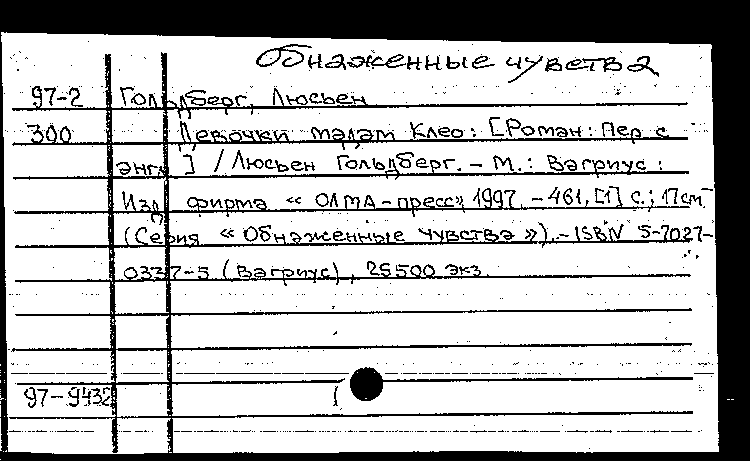 Обнаженные чувства
97-2 Гольдберг, Люсьен
300 Девочки мадам Клео: [Роман: Пер с
англ] / Люсьен Гольдберг. - М.: Вагриус:
Изд. фирма «ОЛМА-пресс», 1997. - 461, [1] с.; 17см
(Серия «Обнаженные чувства»). - ISBN 5-7027-
0337-5 (Вагриус), 25500 экз
97-9432